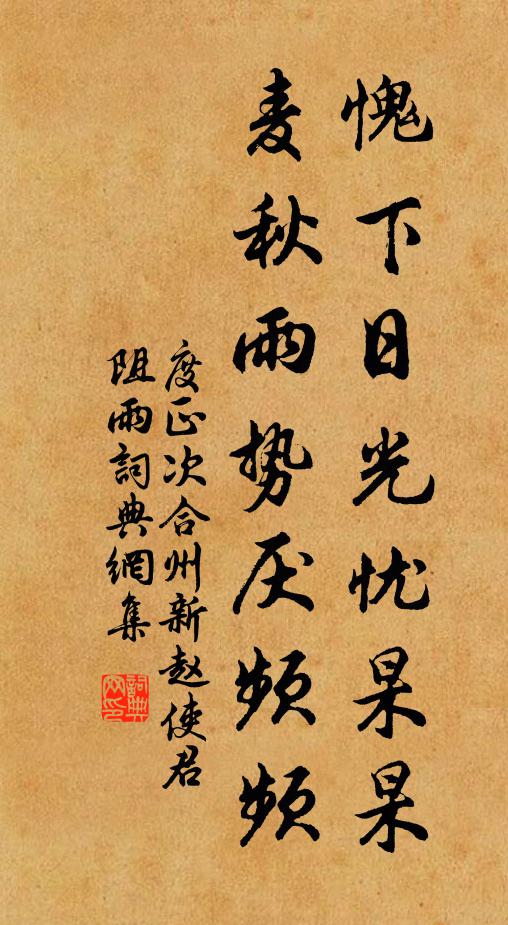 愧下日光忧杲杲
麦秋雨势厌频频
度正次合州新赵使君
阻雨詞典網集
詞典網印